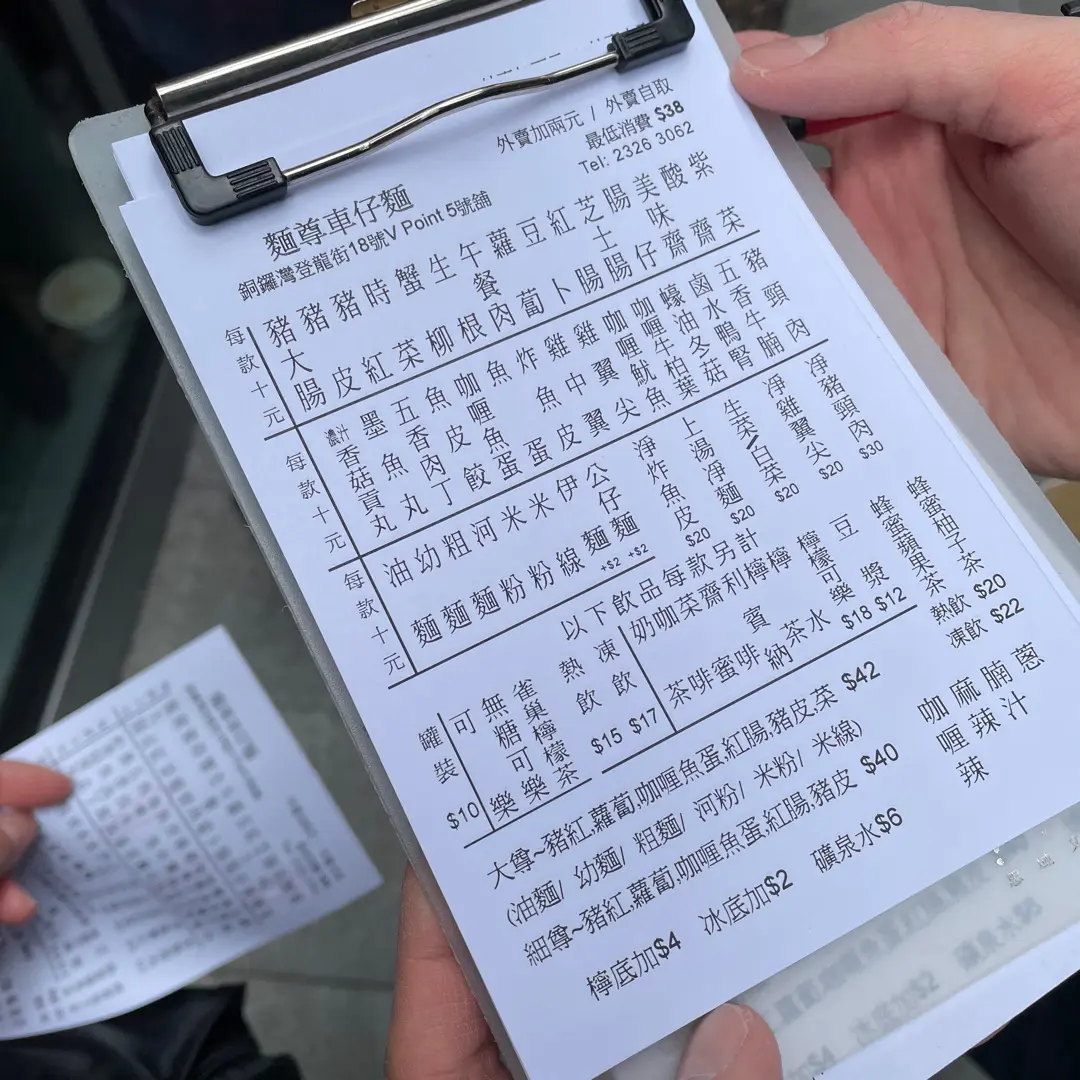 外賣加兩元 / 外賣自取
最低消費 $38
Tel: 2326 3062
麵尊車仔麵
銅鑼灣登龍街18號V Point 5號舖
每款十元
豬大腸
豬皮
豬紅
時菜
蟹柳
生根
午餐肉
蘿蔔
豆卜
紅腸
芝士腸
腸仔
美味齋
酸齋
紫菜
每款十元
濃汁香菇貢丸
墨魚丸
五香肉丁
魚皮餃
咖喱魚蛋
魚蛋
炸魚皮
雞中翼
雞翼尖
咖喱魷魚
咖喱牛柏葉
蠔油冬菇
鹵水鴨腎
五香牛腩
豬頸肉
每款十元
油麵
幼麵
粗麵
河粉
米粉
米線
伊麵 +$2
公仔麵 +$2
淨炸魚皮 $20
上湯淨麵 $20
生菜/白菜 $20
淨雞翼尖 $20
淨豬頸肉 $30
罐裝 $10
可樂
無糖可樂
雀巢檸檬茶
以下飲品每款另計
熱飲 $15
凍飲 $17
奶茶
咖啡
菜蜜
齋啡
利賓納
檸茶
檸水
檸檬可樂 $18
豆漿 $12
蜂蜜蘋果茶
蜂蜜柚子茶
熱飲 $20
凍飲 $22
大尊~豬紅,蘿蔔,咖喱魚蛋,紅腸,豬皮菜 $42
(油麵/ 幼麵/ 粗麵/ 河粉/ 米粉/ 米線)
細尊~豬紅,蘿蔔,咖喱魚蛋,紅腸,豬皮 $40
檸底加$4 冰底加$2 礦泉水$6
咖喱辣
麻辣
腩汁
蔥